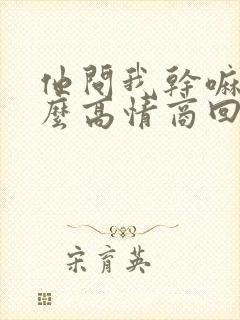 他問我幹嘛
麼高情商回
宋育英